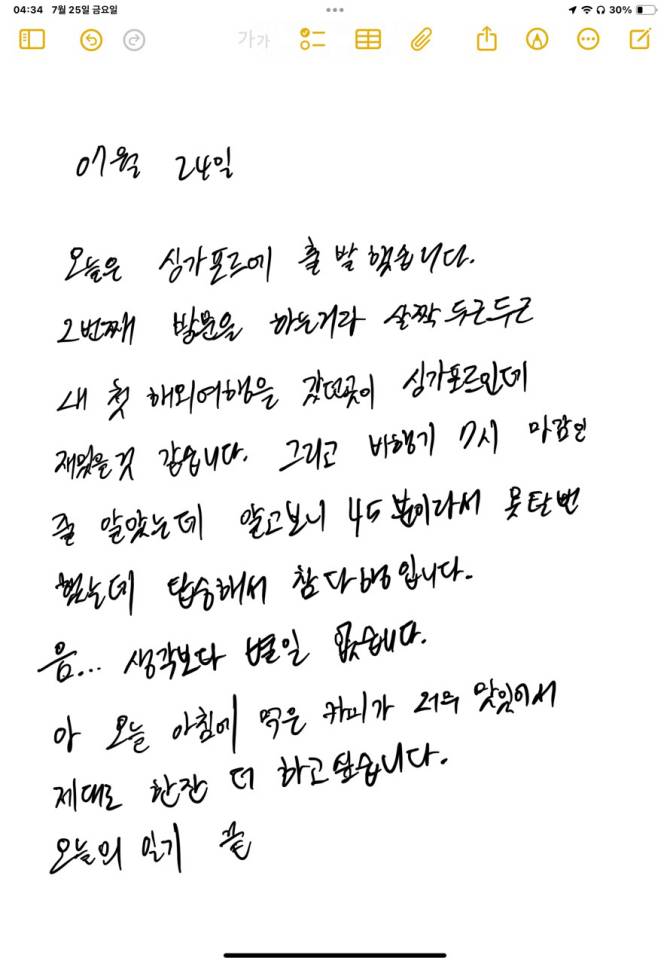 04:34 7월 25일 금요일
30%
가가
07월 24일
오늘은 싱가포르에 출발했습니다.
2번째 방문을 하는거라 살짝 두근두근
내 첫 해외여행을 갔던곳이 싱가포르인데
재밌을것 같습니다. 그리고 비행기 7시 마감인
줄 알았는데 알고보니 45분이라서 못탄번
했는데 탑승해서 참 다행입니다.
음... 생각보다 별일 없습니다.
아 오늘 아침에 먹은 커피가 너무 맛있어서
제대로 한잔 더 하고싶습니다.
오늘의 일기 끝